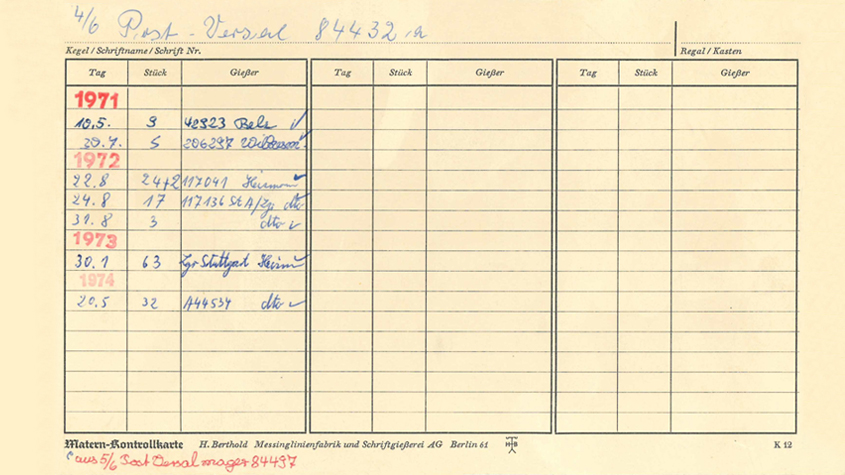 4/6 Post-Versal 84432 a
Kegel / Schriftname / Schrift Nr. Regal / Kasten
Tag Stück Gießer Tag Stück Gießer Tag Stück Gießer
1971
10.5. 9 42923
20.7. 5 206297
1972
22.8 24+2 117041
24.8 17 117136 dto
31.8 3 dto
1973
30.1 63 Lgr Stuttgart
1974
20.5 32 A44534 dto
Matern-Kontrollkarte H. Berthold Messinglinienfabrik und Schriftgießerei AG Berlin 61 HB K 12
aus 5/6 Post Versal mager 84497